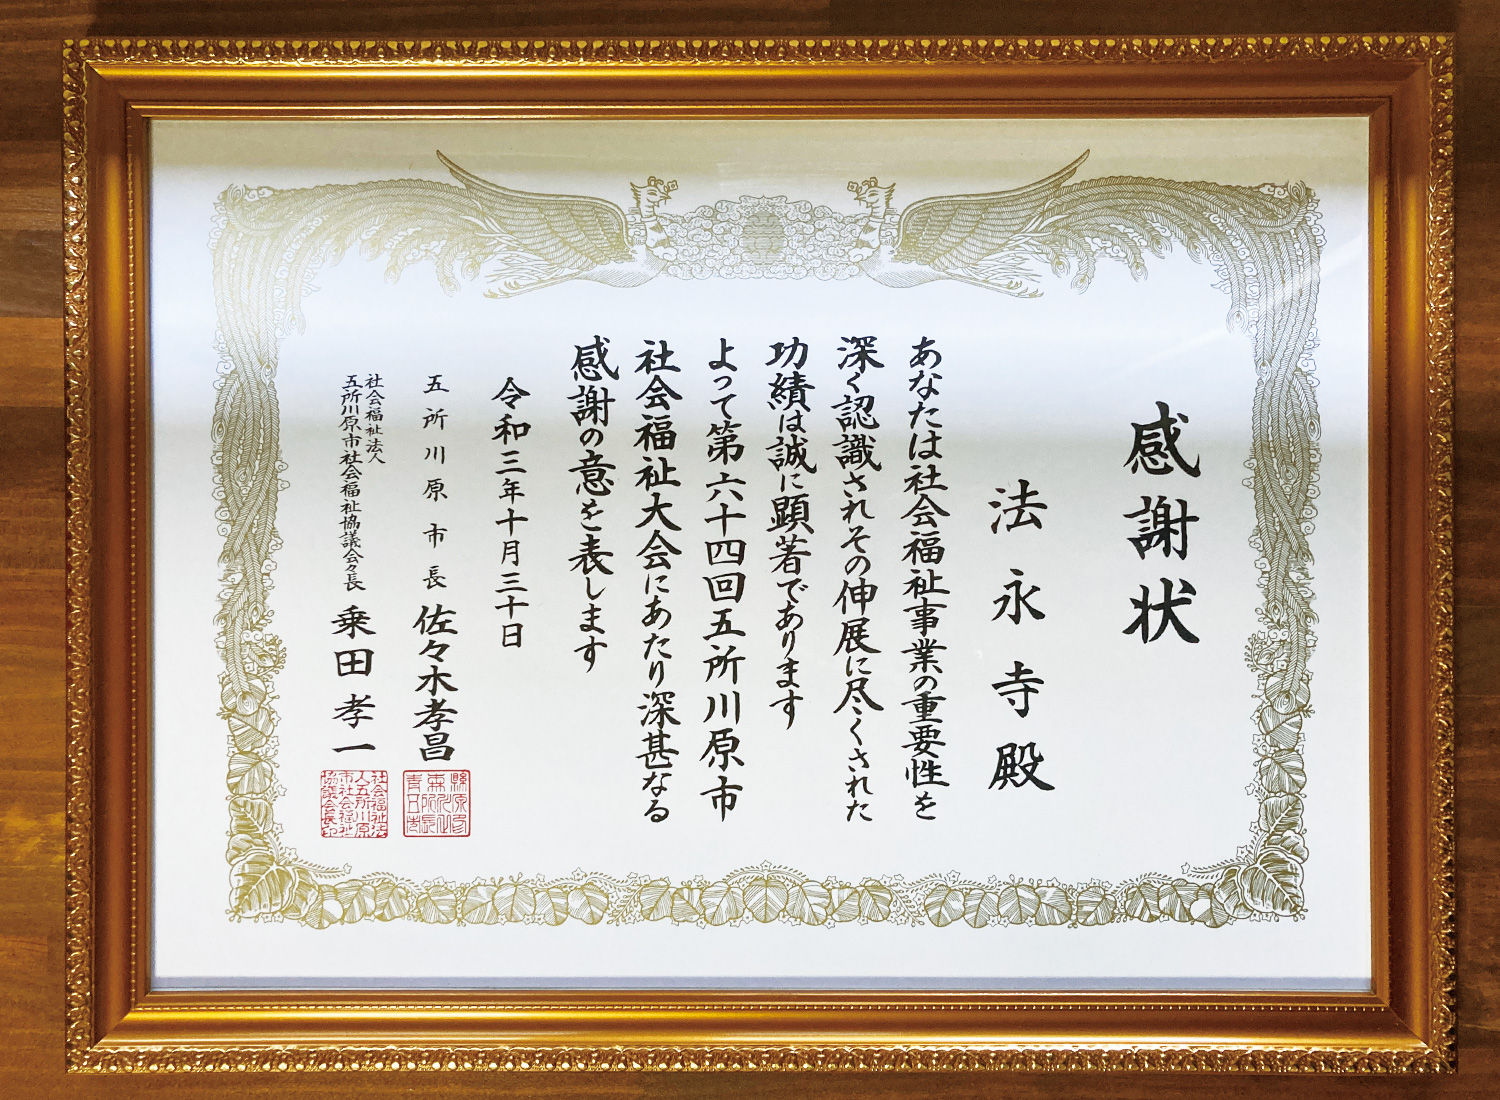 感謝状
法永寺殿
あなたは社会福祉事業の重要性を
深く認識されその伸展に尽くされた
功績は誠に顕著であります
よって第六十四回五所川原市
社会福祉大会にあたり深甚なる
感謝の意を表します
令和三年十月三十日
五所川原市長 佐々木孝昌
社会福祉法人
五所川原市社会福祉協議会々長 乗田孝一
社会福祉法
人五所川原
市社会福祉
協議会長印